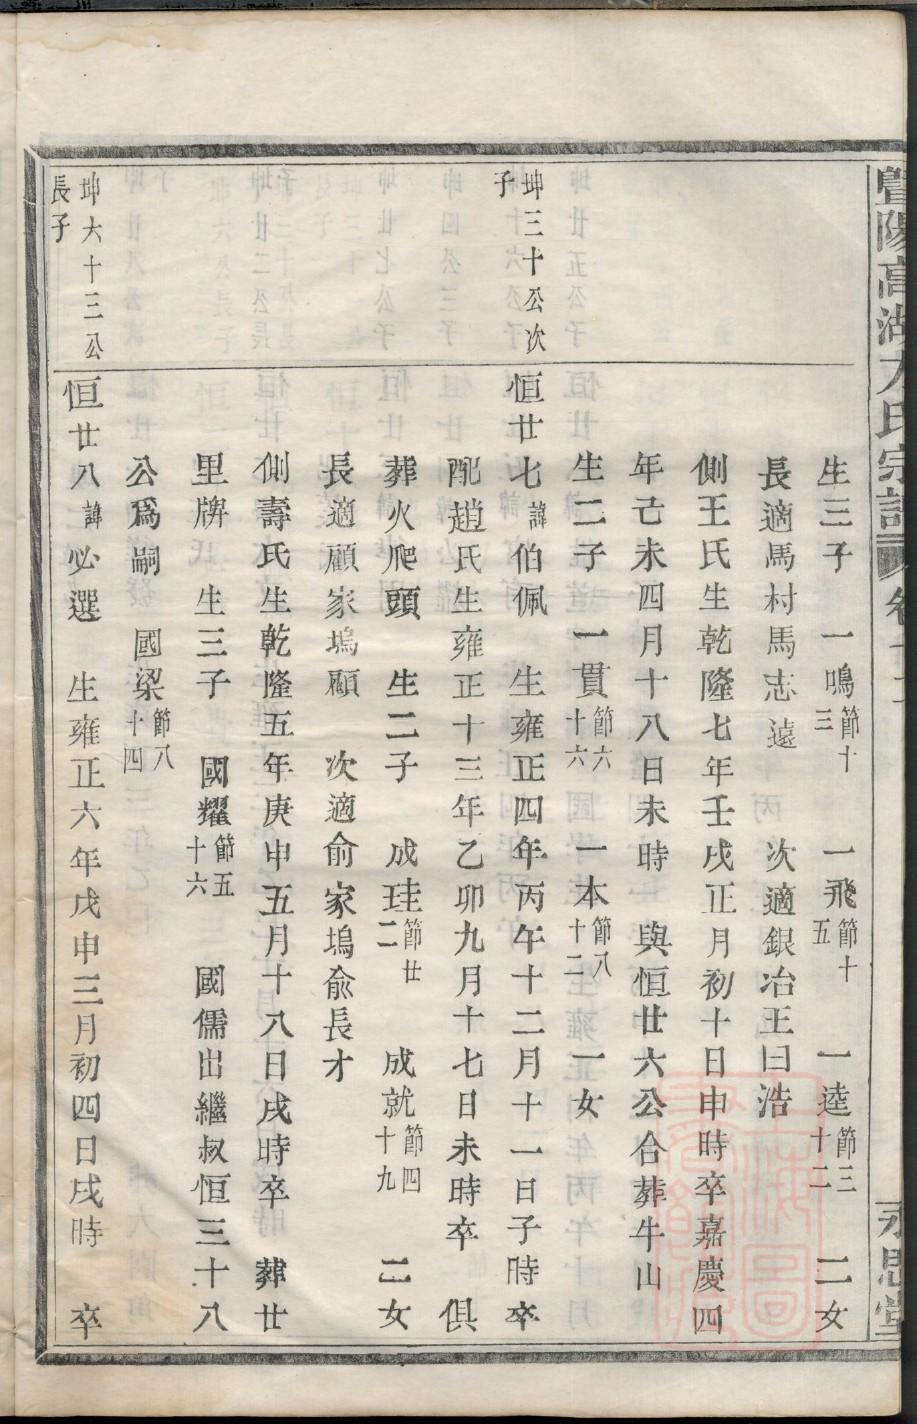 暨陽高湖方氏宗譜 卷十二 永思堂
生三子 一鳴節十三 一飛節十五 一逵節三十二 二女
長適馬村馬志遠 次適銀冶王曰浩
側王氏生乾隆七年壬戌正月初十日申時卒嘉慶四
年己未四月十八日未時 與恒廿六公合葬牛山
生二子 一貫節六十六 一本節八十二 一女
坤三十公次子
恒廿七諱伯佩 生雍正四年丙午十二月十一日子時卒
配趙氏生雍正十三年乙卯九月十七日未時卒 俱
葬火爬頭 生二子 成珪節廿二 成就節四十九 二女
長適顧家塢顧 次適俞家塢俞長才
側壽氏生乾隆五年庚申五月十八日戌時卒 葬廿
里牌 生三子 國耀節五十六 國儒出繼叔恒三十八
公爲嗣 國梁節八十四
坤六十三公長子
恒廿八諱必選 生雍正六年戊申三月初四日戌時 卒